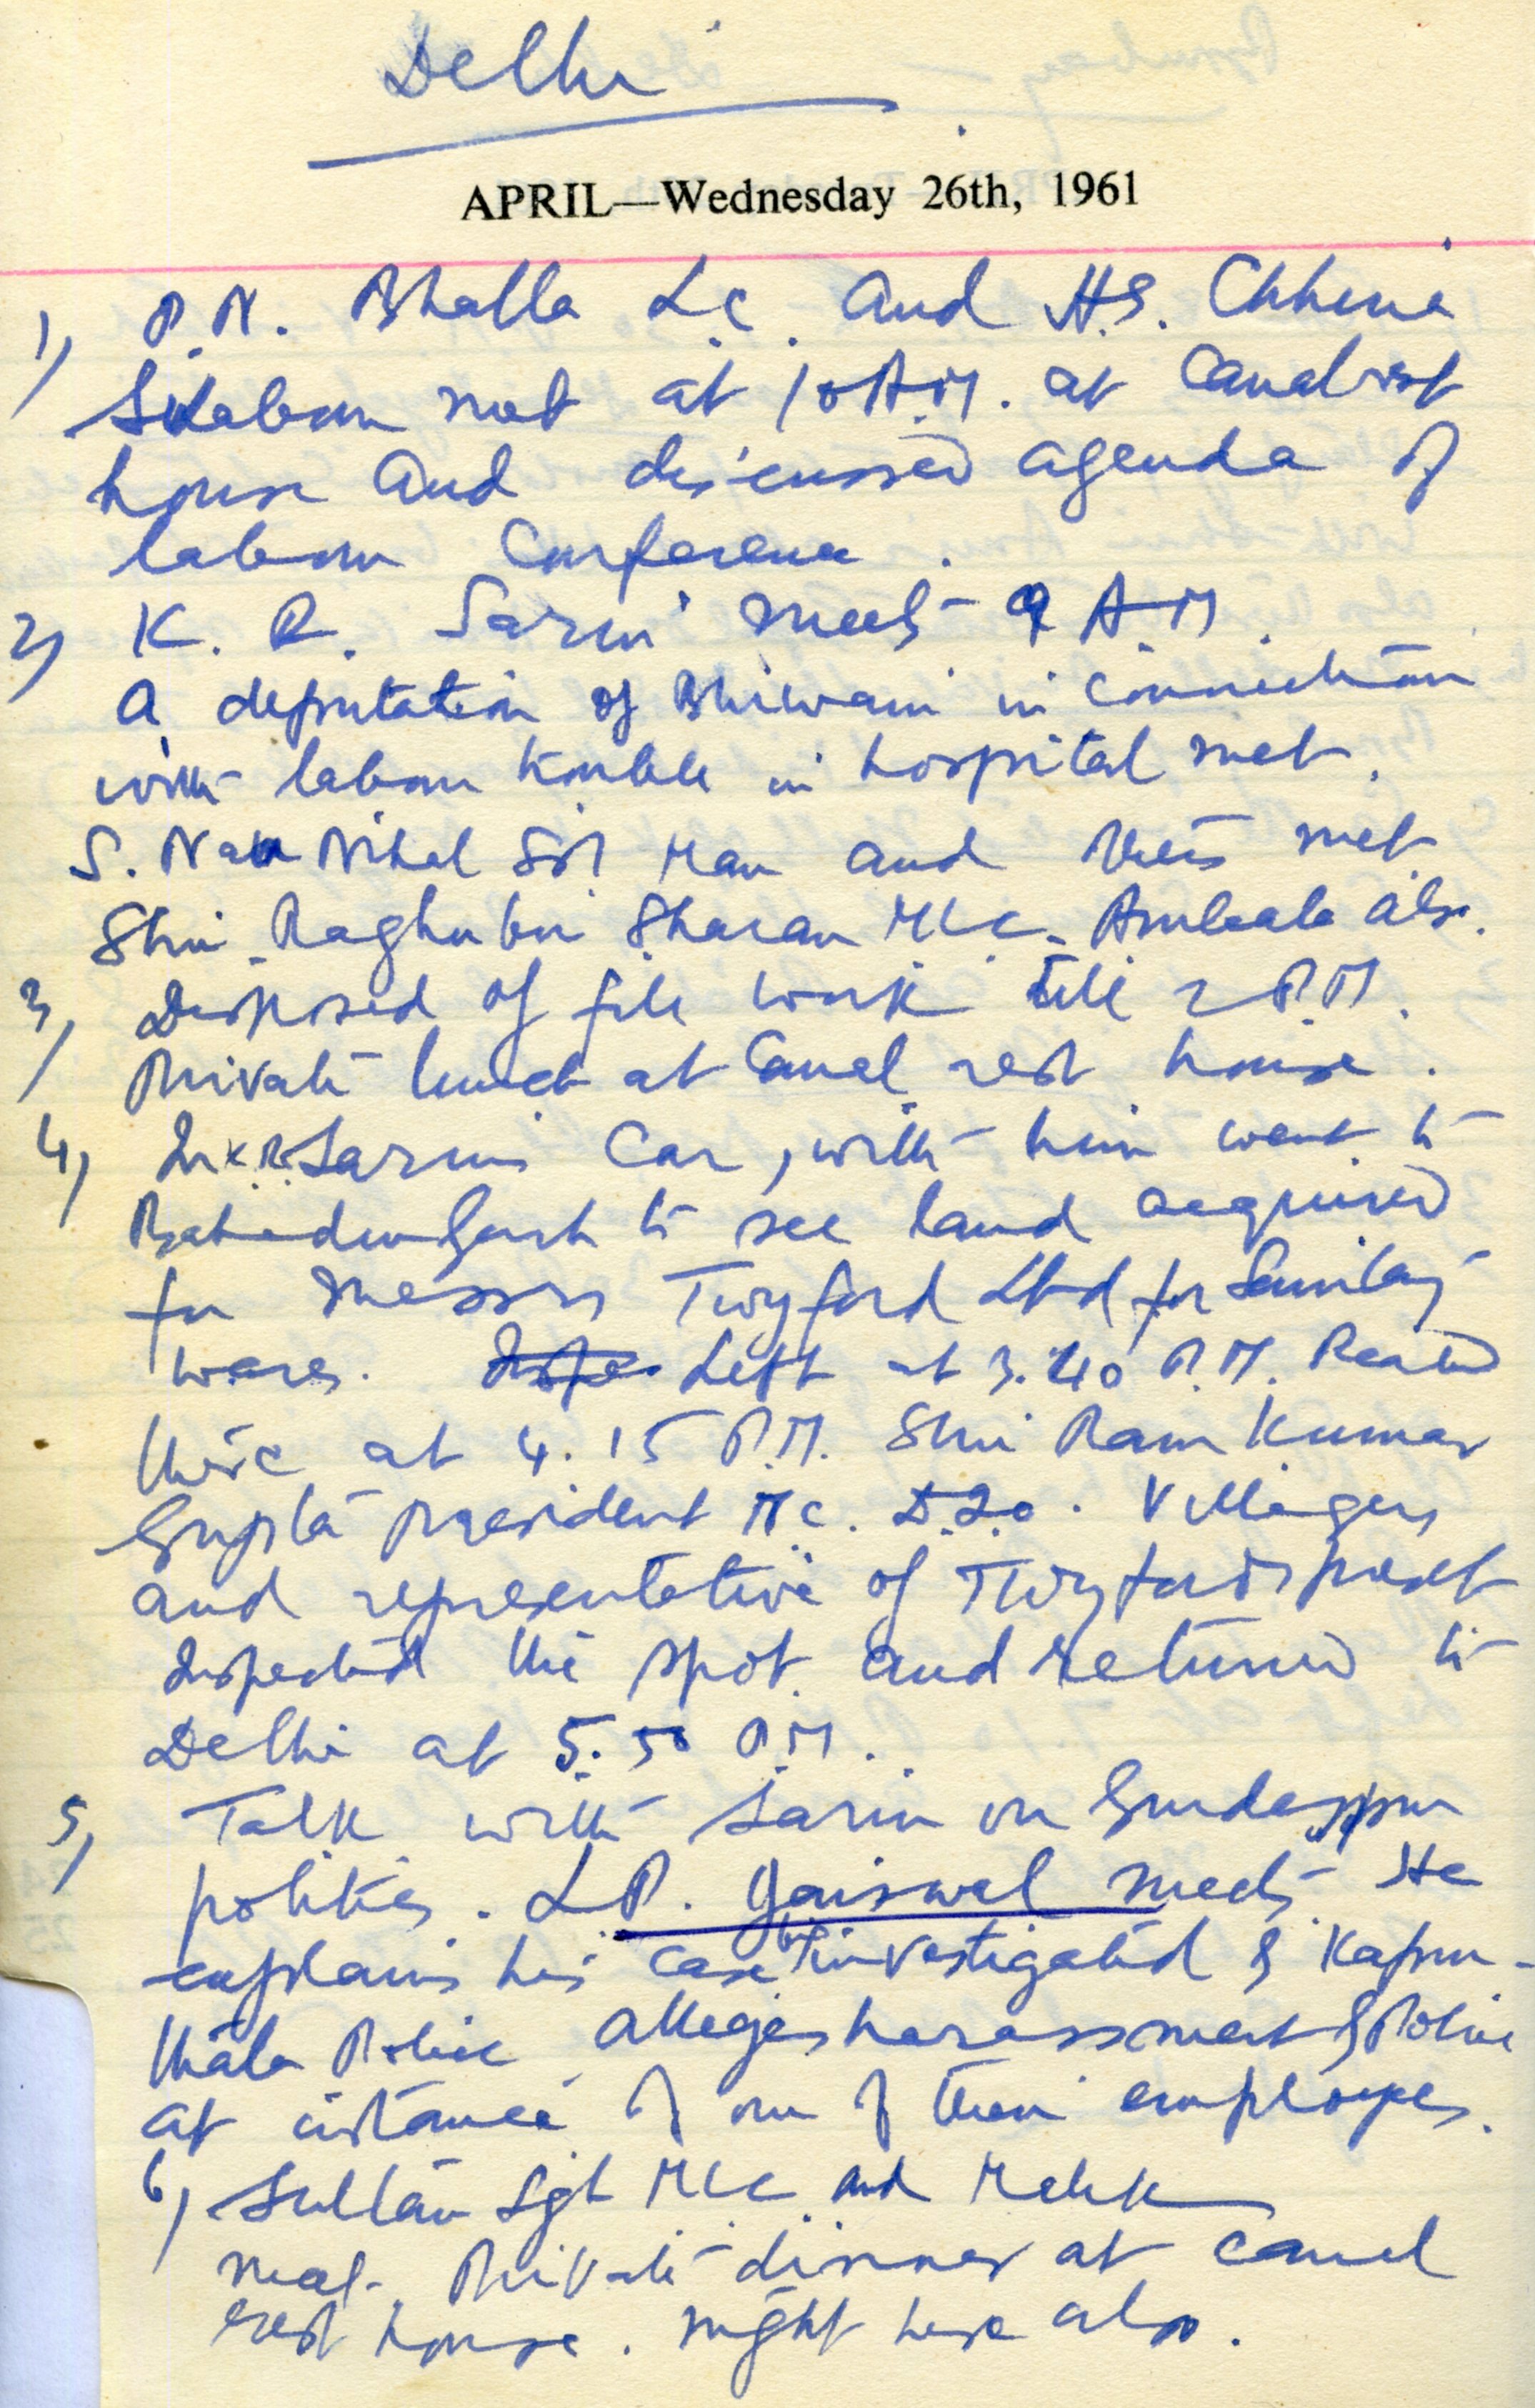 Delhi
APRIL—Wednesday 26th, 1961
1) P.N. Bhalla L.C. and H.S. Chhina
met at 10 A.M. at Canal rest
house and discussed agenda of
labour Conference.
2) K. R. Sarin meets 9 A.M.
A deputation of Bhiwani in connection
with labour trouble in hospital met.
S. Nau Nihal Man and met
Shri Raghubir Sharan MLC. Ambala also.
3) Disposed of file work till 2 P.M.
Private lunch at Canal rest house.
4) In K.R. Sarin's Car, with him went to
Bahadurgarh to see land acquired
for messrs Twyford Ltd for Sanitary
wares. Left at 3.40 P.M. Reached
there at 4.15 P.M. Shri Ram Kumar
Gupta president M.C. Villagers
and representative of Twyfords present
Inspected the spot and returned to
Delhi at 5.50 P.M.
5) Talk with Sarin on Gurdaspur
politics. L.P. Jaiswal meets. He
explains his case being investigated by Kapur-
thala Police alleges harassment by Police
at instance of one of their employees.
6) Sultan Sgh MLC and
meet. Private dinner at canal
rest house. night here also.